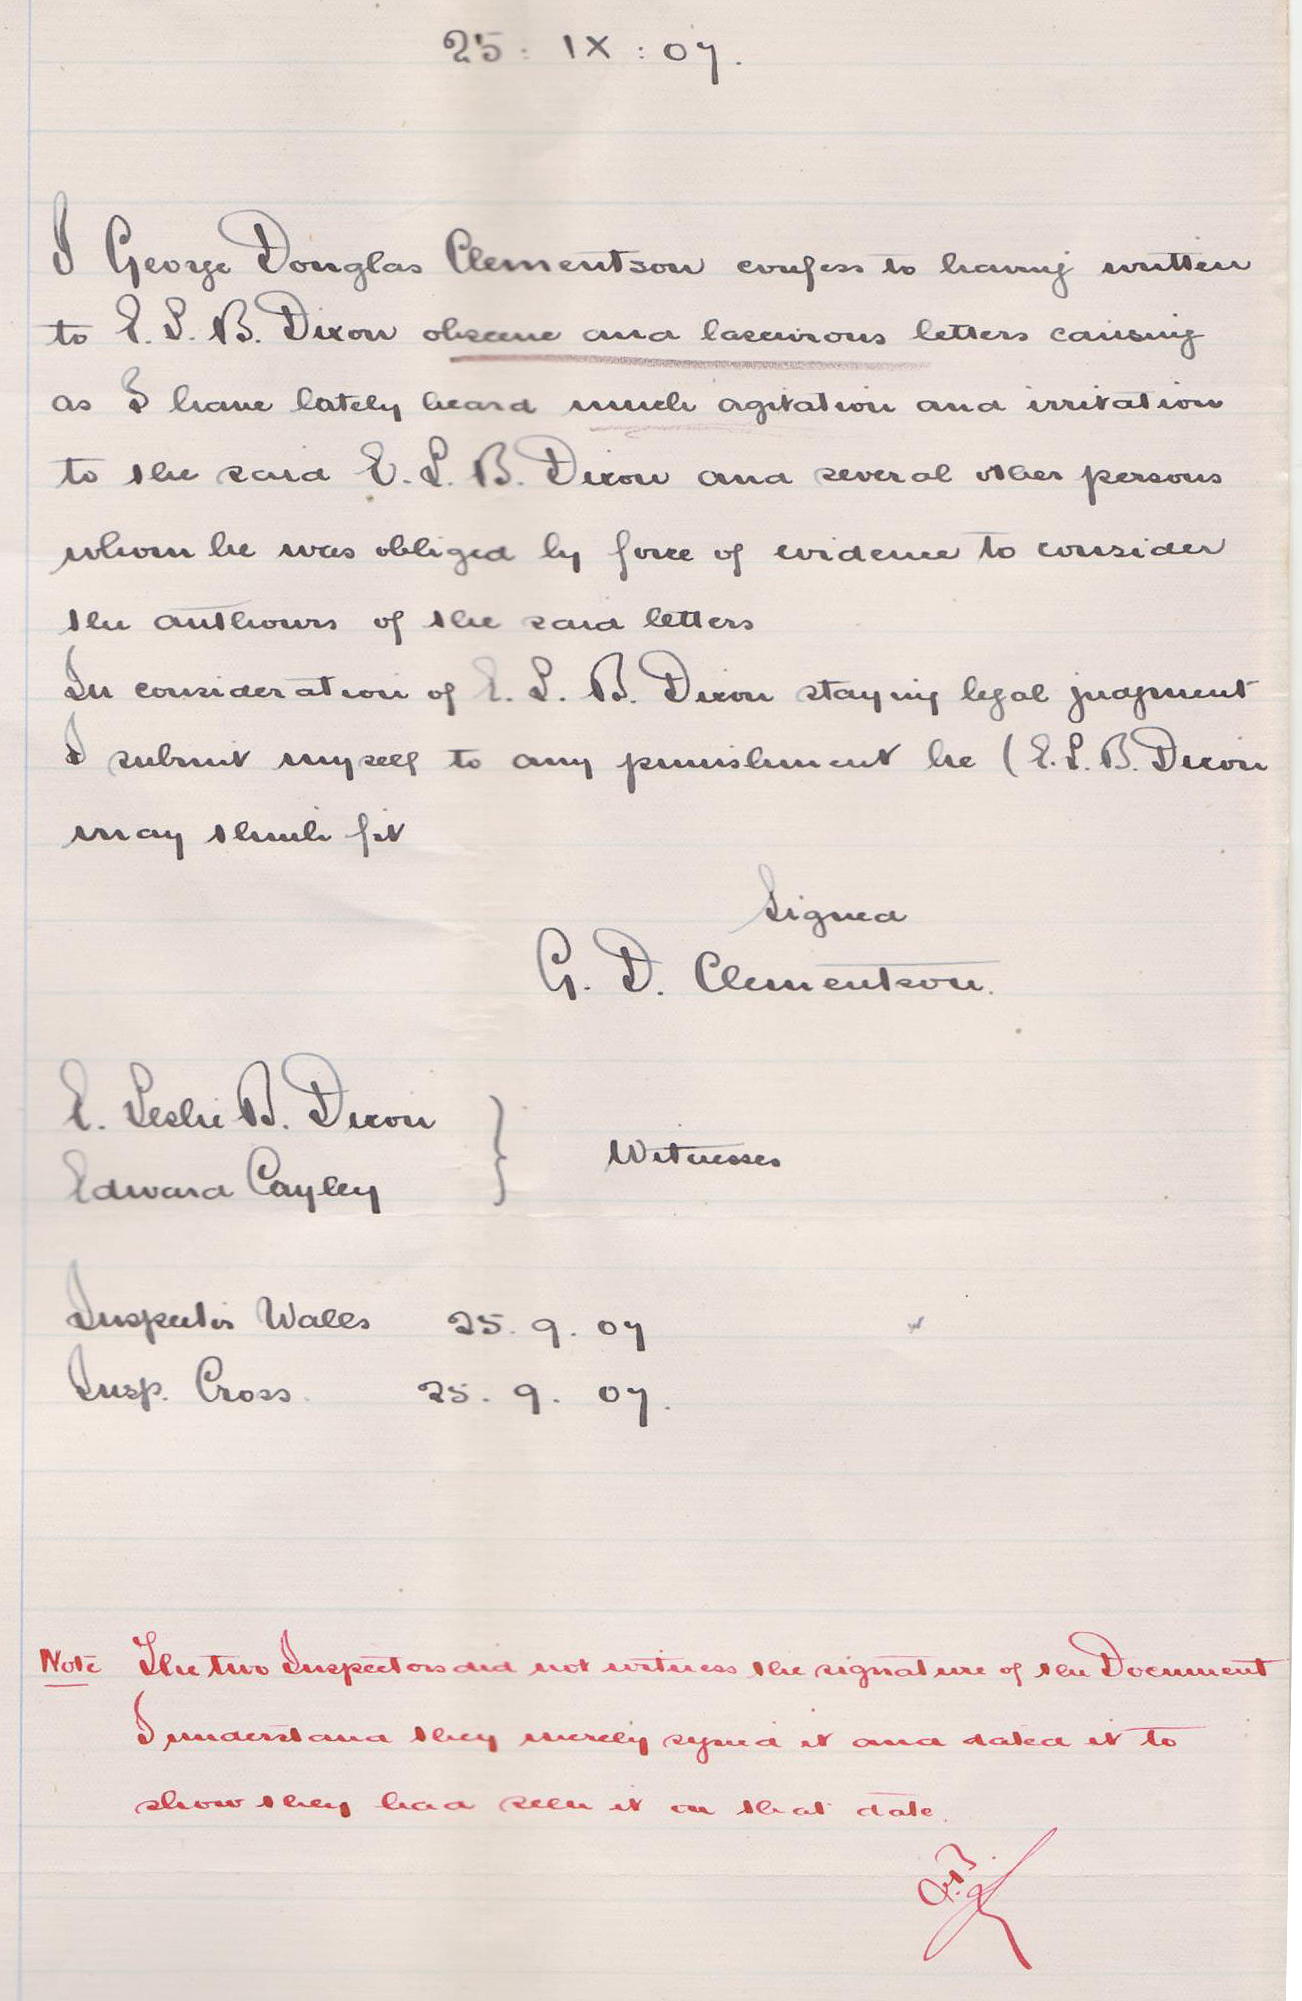 25 : IX : 07.
I George Douglas Clementson confess to having written
to E. L. B. Dixon obscene and lascivious letters causing
as I have lately heard much agitation and irritation
to the said E. L. B. Dixon and several other persons
whom he was obliged by force of evidence to consider
the authours of the said letters
In consideration of E. L. B. Dixon staying legal judgment
I submit myself to any punishment he (E. L. B. Dixon
may think fit
Signed
G. D. Clementson.
E. Leslie B. Dixon
} Witnesses
Edward Cayley
Inspector Walls 25. 9. 07
Insp. Cross. 25. 9. 07.
Note The two Inspectors did not witness the signature of the Document
I understand they merely signed it and dated it to
show they had seen it on that date.